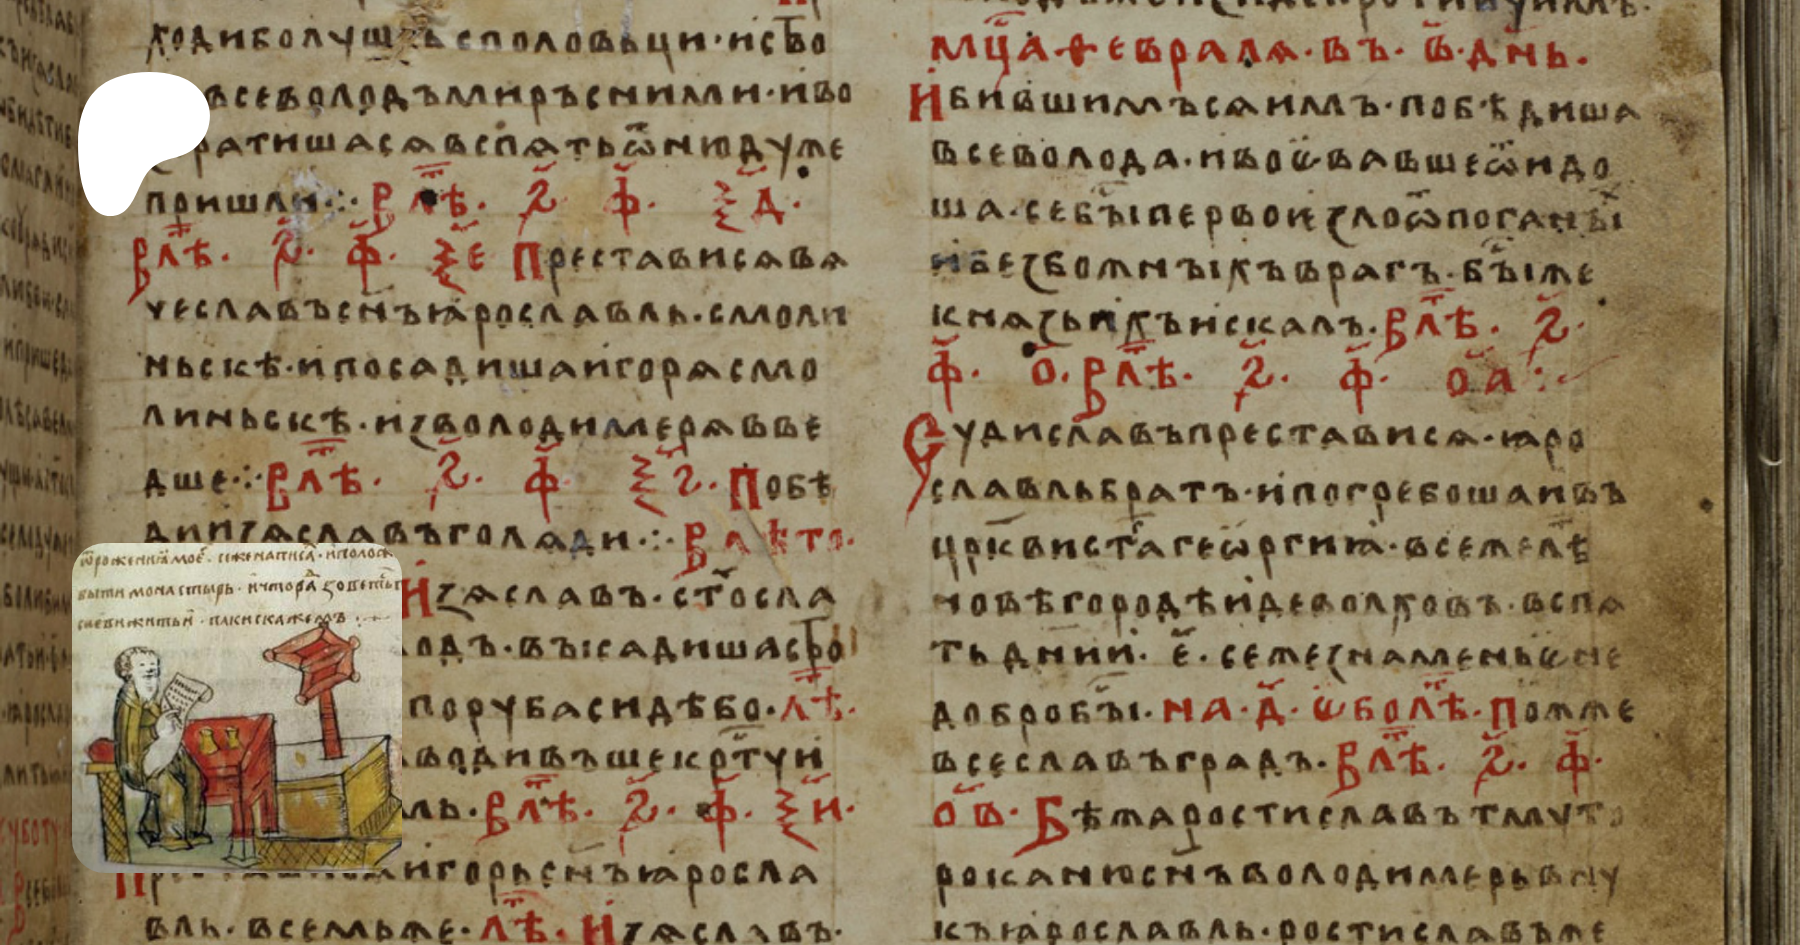 ходиболушь споловьци·исъво
всеволодъмиръсними·иво
ратишасѧвспѧтьѿнюдуже
пришли·:· В лѣ҃т. ҂ѕ҃. ф҃. ѯ҃д҃.
В лѣ҃т. ҂ѕ҃. ф҃. ѯ҃е Престависѧвѧ
чеславъсн҃ъꙗрославль.смоли
ньскѣ·ипосадишаигорѧсмо
линьскѣ·изволодимерѧвыве
дше·:· В лѣ҃т. ҂ѕ҃. ф҃. ѯ҃ѕ҃. Побѣ
диизѧславъголѧди·:· В лѣто.
Изѧславъ.ст҃осла
лодъ.въісадишастръ
порубасидѣбо·лѣ҃т.
водивъшекрс҃туи
ль. В лѣ҃т. ҂ѕ҃. ф҃. ѯ҃и.
игорьсн҃ъꙗросла
вль.всемьже.лѣ҃т. Изѧславъ.
мц҃афевралѧ.въ. в҃.дн҃ь.
Ибившимъсѧимъ.побѣдиша
всеволода.ивоѥвавшеѿидо
ша.себъіпервоиезлоѿпоганъі
ибезбожнъіхъврагъ.бъіже
кнѧзьихъискалъ. В лѣ҃т. ҂ѕ҃.
ф҃. о҃. В лѣ҃т. ҂ѕ҃. ф҃. о҃а҃:·
Судиславъпреставись.ꙗро
славльбратъ.ипогребошаивъ
црк҃вист҃агегеѡргиꙗ.всемелѣ
новѣгородѣидеволховъ.вспѧ
тьднии. е҃. сежезнаменьѥне
добробъі. на.д҃. еболѣ҃т. Пожже
всеславъградъ. В лѣ҃т. ҂ѕ҃. ф҃.
о҃в҃. Бѣжаростиславътмуто
роканюсн҃ъволодимерьвну
къꙗрославль.ростиславъже
ѿроженїѧмоѐ. сѐженаписа̀.
быти монастырь. и҆чтора́ зоветьс